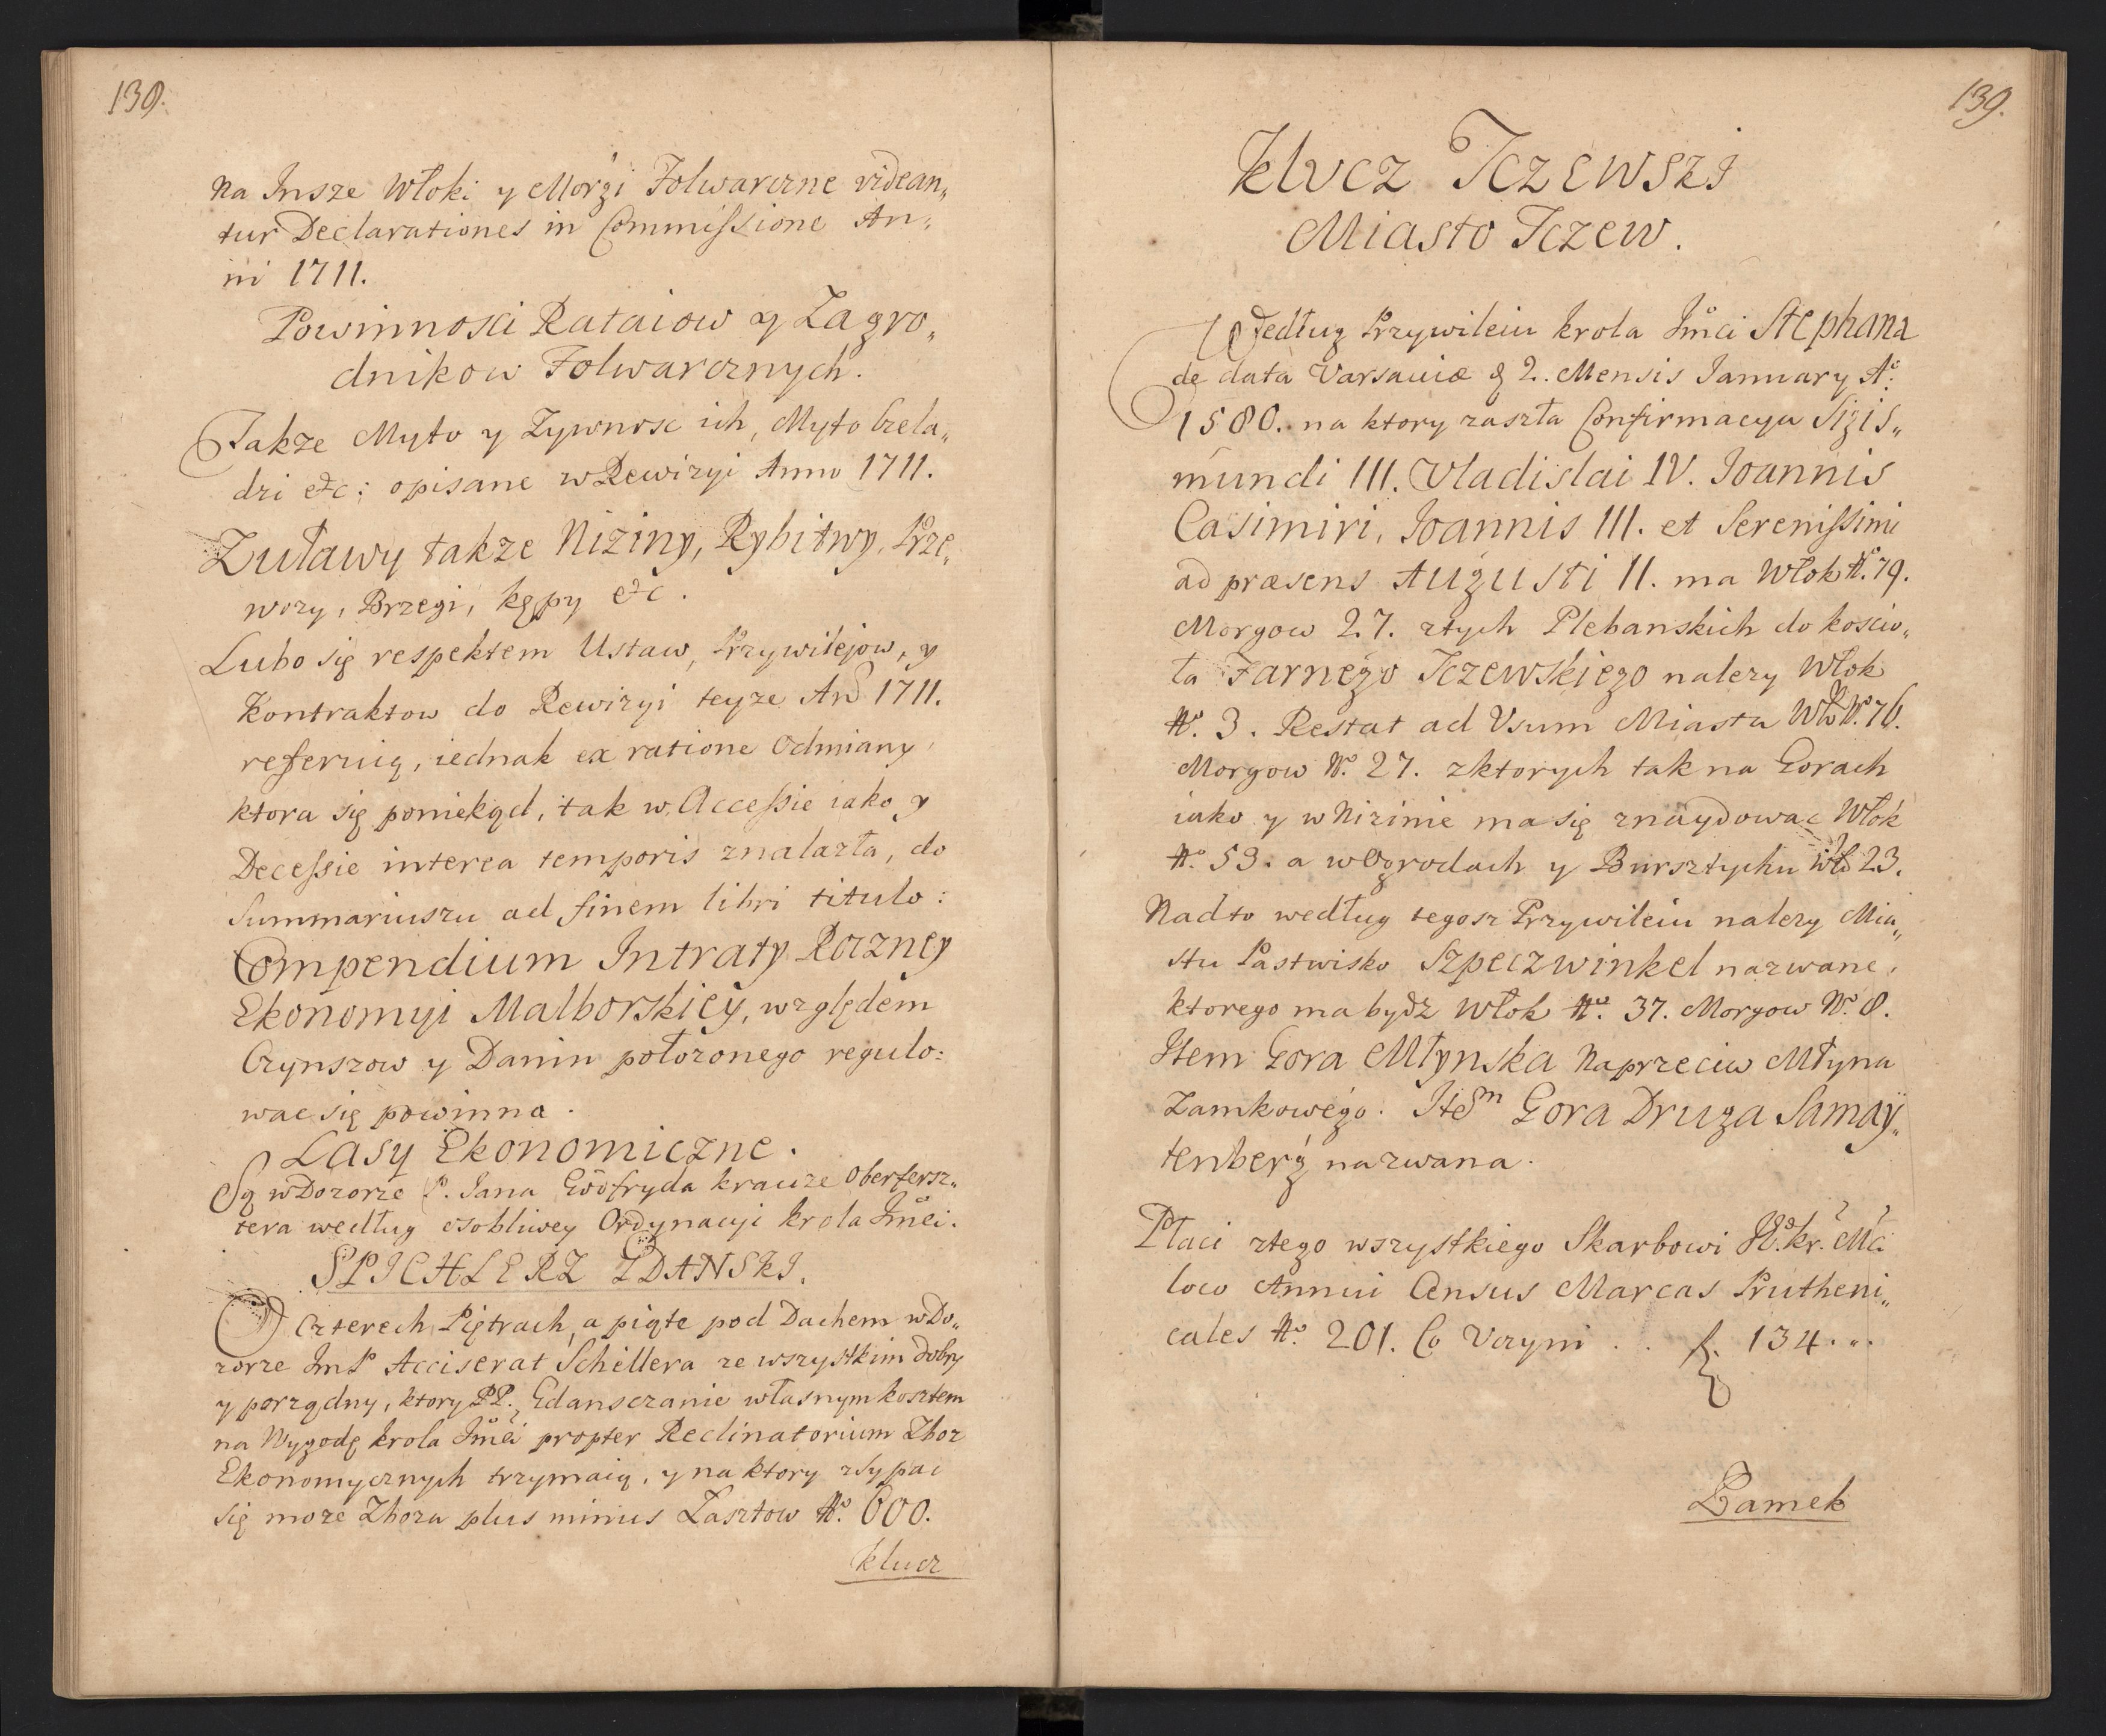 138.
Na Insze Włoki y Morgi Folwarczne videan„
tur Declarationes in Commissione An„
ni 1711.
Powinnosci Rataiow y Zagro„
dnikow Folwarcznych.
Takze Myto y Zywnosc ich, Myto Czela„
dzi etc: opisane w Rewizyi Anno 1711.
Zuławy takze Niziny, Rybitwy, Prze„
wozy, Brzegi, kępy etc.
Lubo się respektem Ustaw, Przywilejow, y
Kontraktow do Rewizyi teyze Ano 1711.
referuią, iednak ex ratione Odmiany,
ktora się poniekąd, tak w Accessie iako y
Decessie interea temporis znalazła, do
Summariuszu ad finem libri titulo:
Compendium Intraty Roczney
Ekonomyi Malborskiey, względem
Czynszow y Danin położonego regulo:
wac się powinna.
Lasy Ekonomiczne.
Są w Dozorze P. Jana Gődfryda krauze Oberfersz„
tera według osobliwey Ordynacyi krola Jmći.
SPICHLERZ GDANSKI.
O Czterech Piętrach, a piąte pod Dachem w Do„
zorze JmP Acciserat Schellera ze wszystkim dobry
y porządny, ktory PP. Gdansczanie własnym kosztem
na Wygodę krola Jmći propter Reclinatorium Zboz
Ekonomycznych trzymaią, y na ktory zsypac
się moze Zboza plus minus Łasztow No. 600.
klucz
139.
Klucz Tczewski
Miasto Tczew.
Według Przywileiu krola Jmći Stephana
de data Varsaviæ d 2. Mensis January Ao:
1580. na ktory zaszła Confirmacya Sigis„
mundi III. Vladislai IV. Joannis
Casimiri, Joannis III. et Serenissimi
ad præsens Augusti II. ma Włok No. 79.
Morgow 27. ztych Plebanskich do koscio„
ła Farnego Tczewskiego nalezy Włok
No. 3. Restat ad Usum Miasta Wło No. 76.
Morgow No. 27. zktorych tak na Gorach
iako y w Nizinie ma się znaydowac Włok
No. 53. a w Ogrodach y Bursztychu Wło 23.
Nadto według tegosz Przywileiu nalezy Mia„
stu Pastwisko Szpeczwinkel nazwane,
ktorego ma bydz Włok No. 37. Morgow No. 8.
Item Gora Młynska Naprzeciw Młyna
Zamkowego. Item Gora Druga Samay„
tenberg nazwana.
Płaci ztego wszystkiego Skarbowi JKr. Mći
loco Annui Census Marcas Prutheni„
cales No. 201. Co Uczyni . . f. 134. „.
Zamek